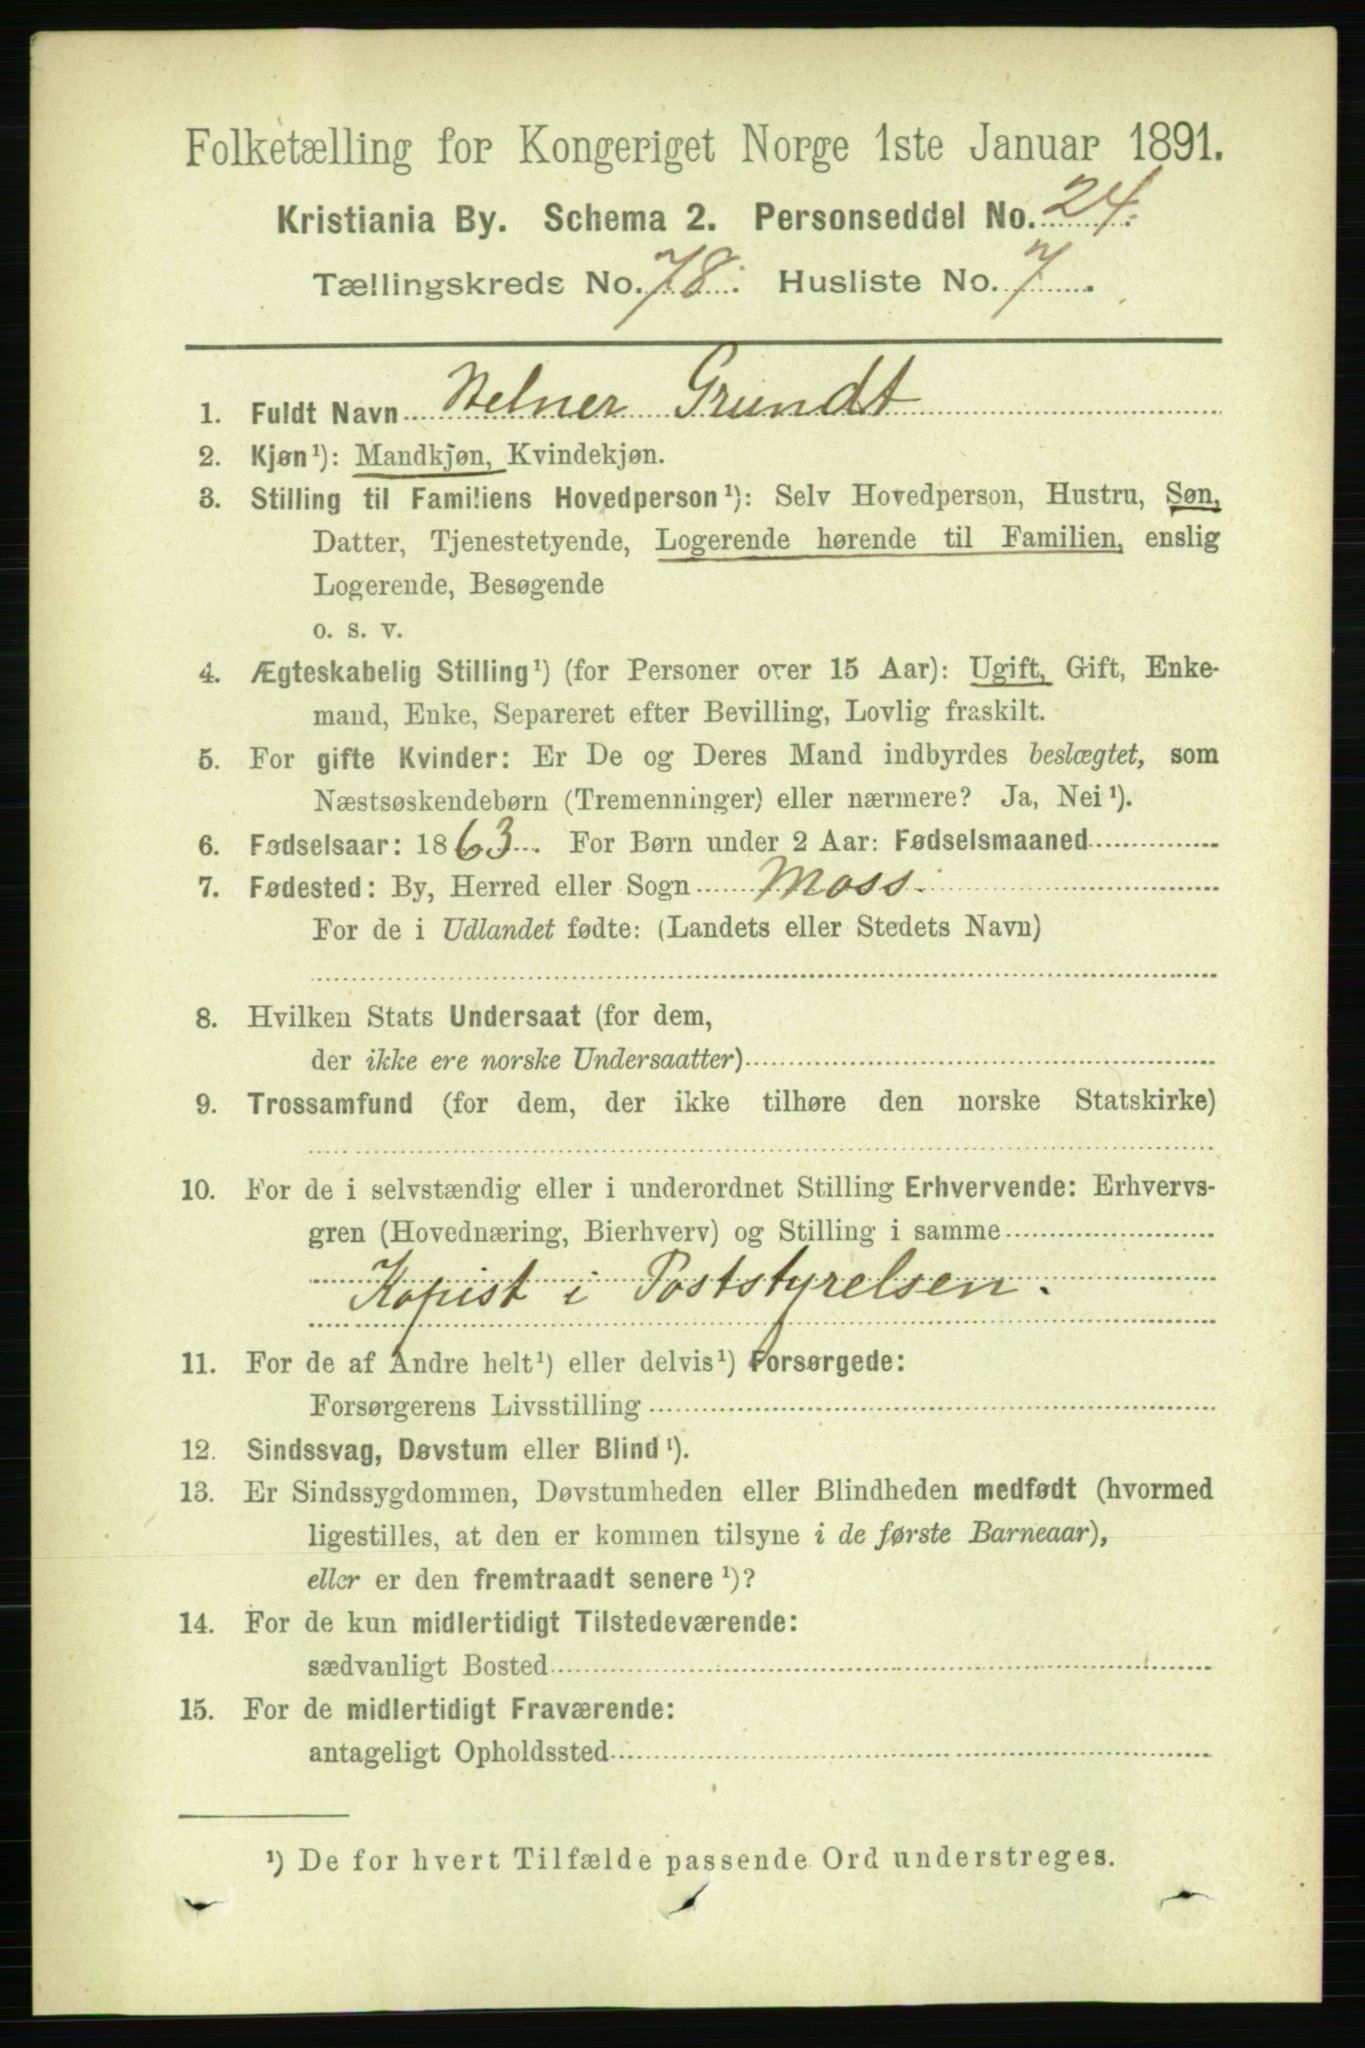 Folketælling for Kongeriget Norge 1ste Januar 1891.
Kristiania By. Schema 2. Personseddel No. 24.
Tællingskreds No. 78. Husliste No. 7.
1. Fuldt Navn Helner Grundt
2. Kjøn¹): Mandkjøn, Kvindekjøn.
3. Stilling til Familiens Hovedperson¹): Selv Hovedperson, Hustru, Søn,
Datter, Tjenestetyende, Logerende hørende til Familien, enslig
Logerende, Besøgende
o. s. v.
4. Ægteskabelig Stilling¹) (for Personer over 15 Aar): Ugift, Gift, Enke-
mand, Enke, Separeret efter Bevilling, Lovlig fraskilt.
5. For gifte Kvinder: Er De og Deres Mand indbyrdes beslægtet, som
Næstsøskendebørn (Tremenninger) eller nærmere? Ja, Nei¹).
6. Fødselsaar: 1863. For Børn under 2 Aar: Fødselsmaaned
7. Fødested: By, Herred eller Sogn Moss.
For de i Udlandet fødte: (Landets eller Stedets Navn)
8. Hvilken Stats Undersaat (for dem,
der ikke ere norske Undersaatter)
9. Trossamfund (for dem, der ikke tilhøre den norske Statskirke)
10. For de i selvstændig eller i underordnet Stilling Erhvervende: Erhvervs-
gren (Hovednæring, Bierhverv) og Stilling i samme
Kopist i Poststyrelsen.
11. For de af Andre helt¹) eller delvis¹) Forsørgede:
Forsørgerens Livsstilling
12. Sindssvag, Døvstum eller Blind¹).
13. Er Sindssygdommen, Døvstumheden eller Blindheden medfødt (hvormed
ligestilles, at den er kommen tilsyne i de første Barneaar),
eller er den fremtraadt senere¹)?
14. For de kun midlertidigt Tilstedeværende:
sædvanligt Bosted
15. For de midlertidigt Fraværende:
antageligt Opholdssted
¹) De for hvert Tilfælde passende Ord understreges.